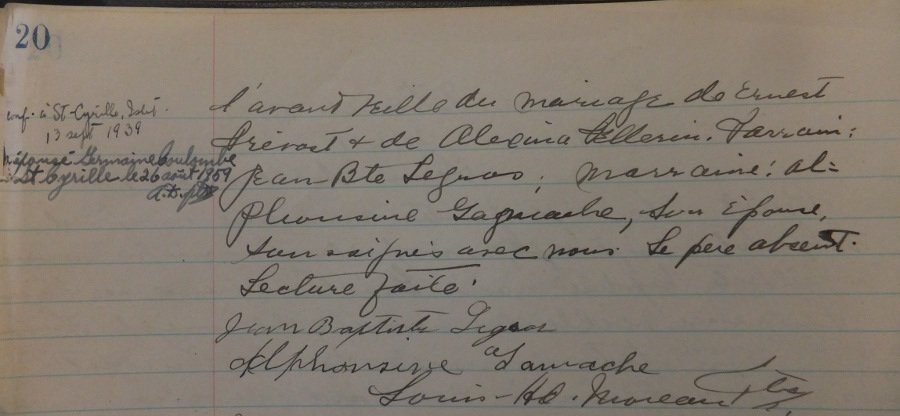 20
conf. à St-Cyrille, Islet.
13 sept 1939
a épousé Germaine Coulombe
St Cyrille le 26 août 1959
l'avant veille du mariage de Ernest
Prévost & de Alexina Pellerin. Parrain:
Jean Bte Legros; marraine: Al-
phonsine Gagnache, son épouse,
soussignés avec nous. Le père absent.
Lecture faite.
Jean Baptiste Legros
Alphonsine Gamache
Louis-Hd. Moreau Ptre